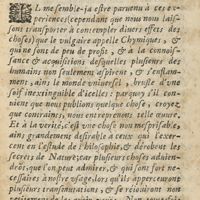 L me semble-ja estre paruenu à ces ex-
periences (cependant que nous nous lais-
sons transporter à contempler diuers effets des
choses) que le vulgaire appelle Chymiques, &
qui ne sont de peu de profit, & à la connois-
sance & acquisitions desquelles plusieurs des
humains non seulement aspirent, & s'enflam-
ment, ains le monde vniuersel, brusle d'vne
soif inexringuible d'icelles: parquoy s'il con-
uient que nous publions quelque chose, croyez
que contrains, nous entreprenons celle œuure.
Et à la verité, c'est vne chose non mesprisable,
ains grandement desirable à ceux qui s'exer-
cent en l'estude de philosophie, & desirent les
secrets de Nature; car plusieurs choses aduien-
dront, que l'on peut admirer, & qui sont fort ne-
cessaires à nostre vsage, lors qu'ils apperceuront
plusieurs transmutations, & se resiouiront non